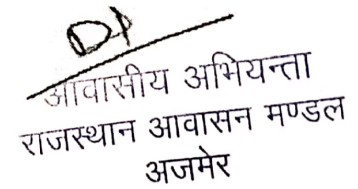 आवासीय अभियन्ता
राजस्थान आवासन मण्डल
अजमेर